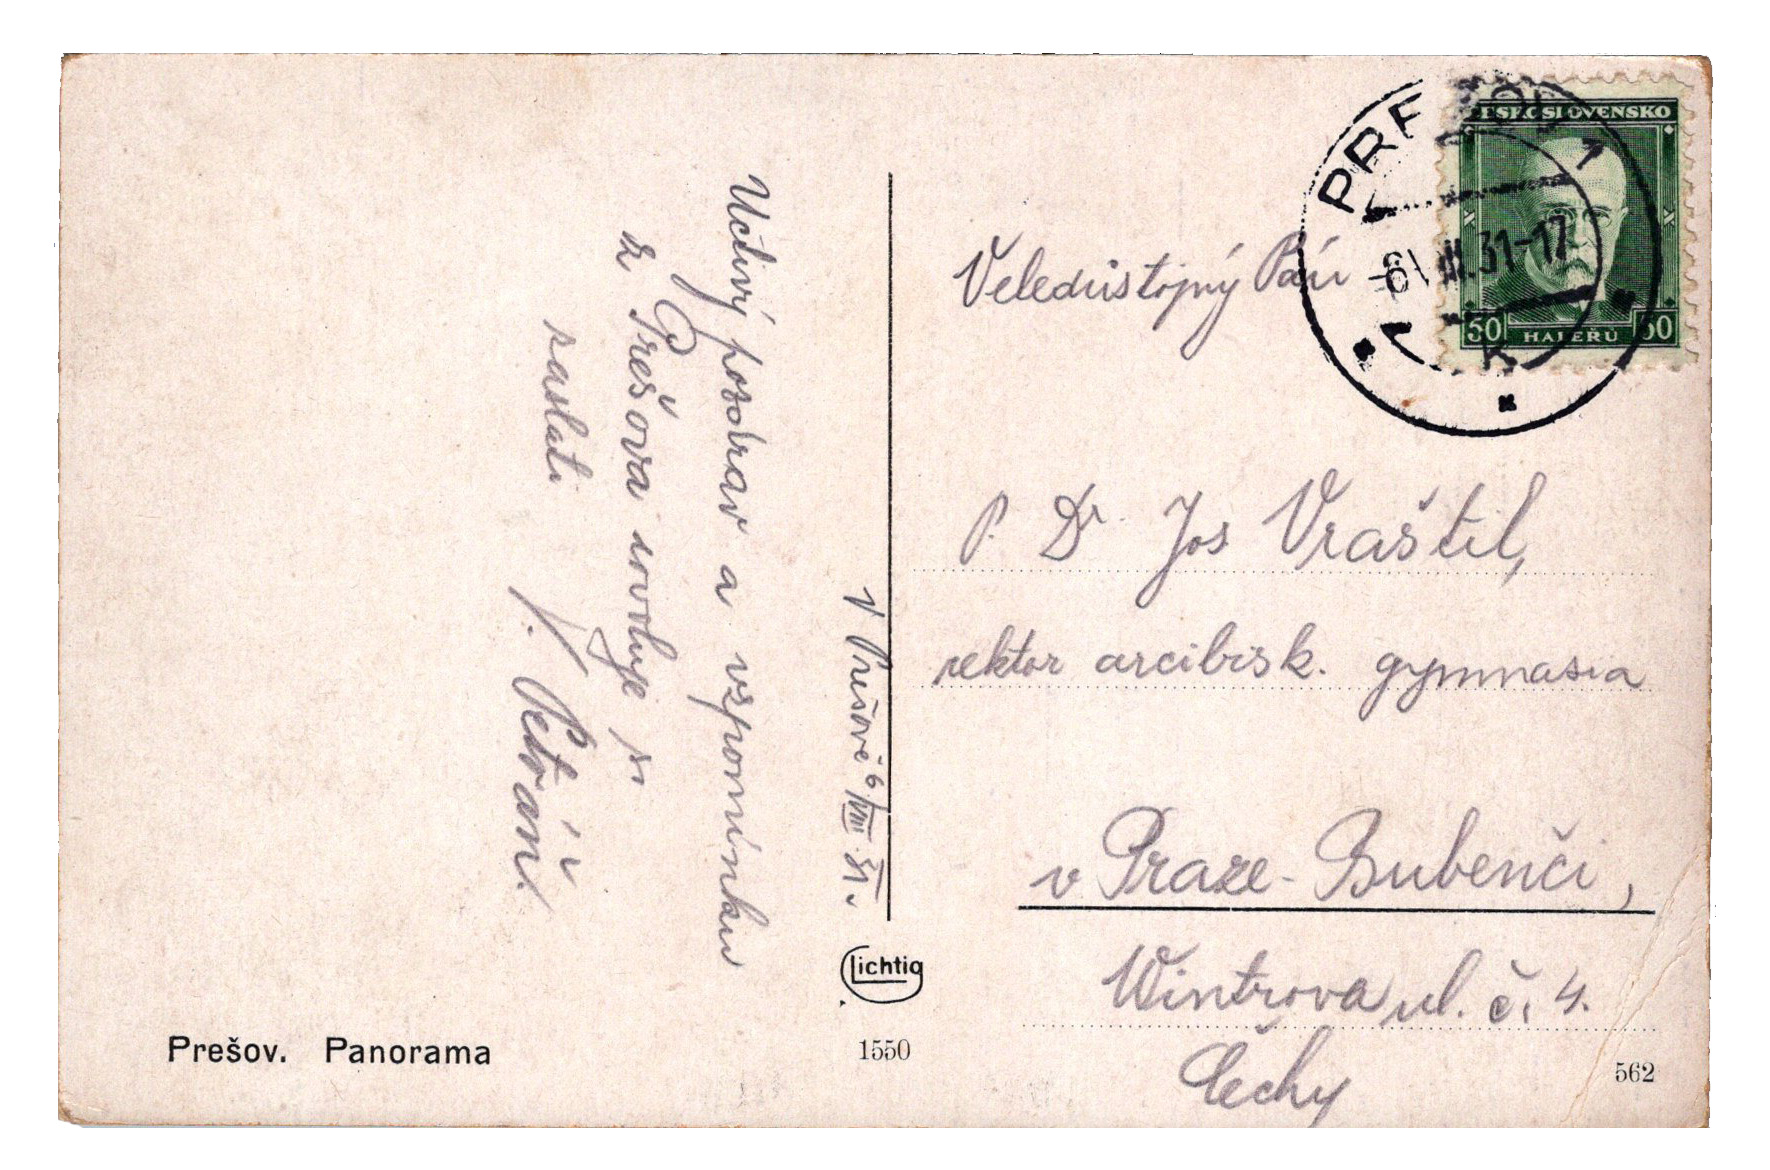 Uctivý pozdrav a vzpomínku
z Prešova dovoluje si
zaslati
J. Petráň.
V Prešově 6/VIII 31.
Lichtig
1550
Prešov. Panorama
PREŠOV 1
-6.VIII.31-17
ČESKOSLOVENSKO
50 HALÉŘŮ 50
Veledůstojný Pán
P. Dr. Jos Vraštil,
rektor arcibisk. gymnasia
v Praze-Bubenči,
Wintrova ul. č. 4.
Čechy
562